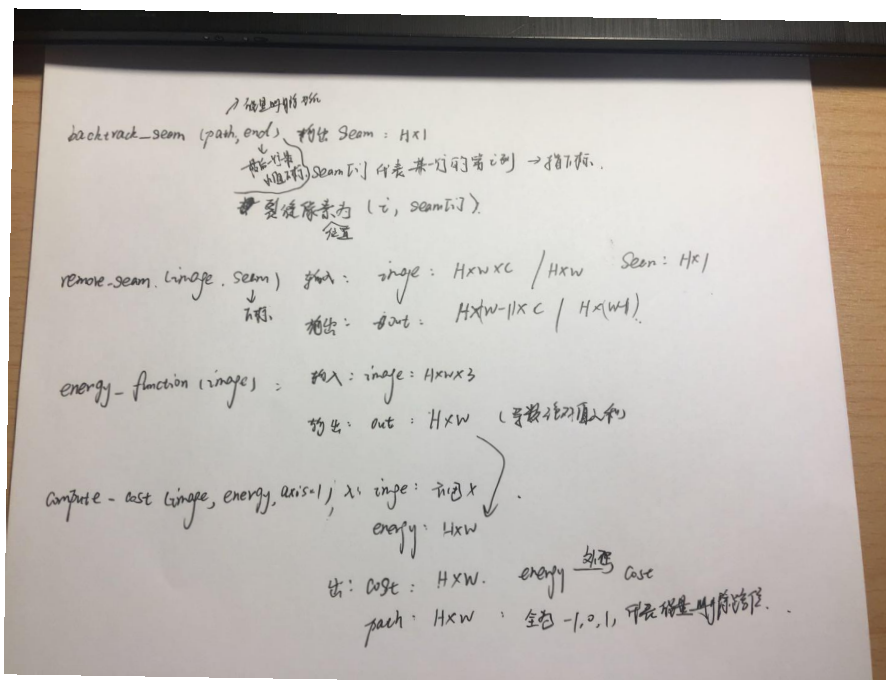 能量
backtrack_seam (path, end), 输出 Seam : H×1
最后一行
seam[i] 代表某一行的第i列 → 指下标.
裂缝像素为 (i, seam[i]).
位置
remove_seam. (image, seam) 输入: image: H×W×C / H×W Seam: H×1
下标.
输出: out: H×(W-1)×C / H×(W-1)
energy_function (image) : 输入: image: H×W×3
输出: out: H×W (导数绝对值之和)
compute_cost (image, energy, axis=1) 入: image:
energy: H×W
出: cost: H×W. energy 处理→ cost
path: H×W : 全为 -1, 0, 1, 代表能量